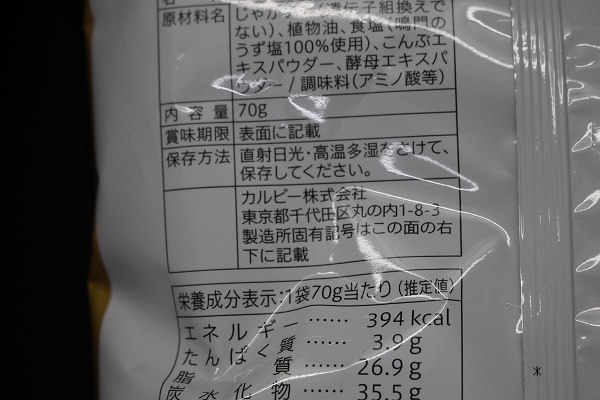 原材料名 じゃがいも(遺伝子組換えで
ない)、植物油、食塩(鳴門の
うず塩100%使用)、こんぶエ
キスパウダー、酵母エキスパ
ウダー/調味料(アミノ酸等)
内容量 70g
賞味期限 表面に記載
保存方法 直射日光・高温多湿をさけて、
保存してください。
カルビー株式会社
東京都千代田区丸の内1-8-3
製造所固有記号はこの面の右
下に記載
栄養成分表示:1袋70g当たり(推定値)
エネルギー …… 394 kcal
たんぱく質 …… 3.9 g
脂質 …… 26.9 g
炭水化物 …… 35.5 g
*